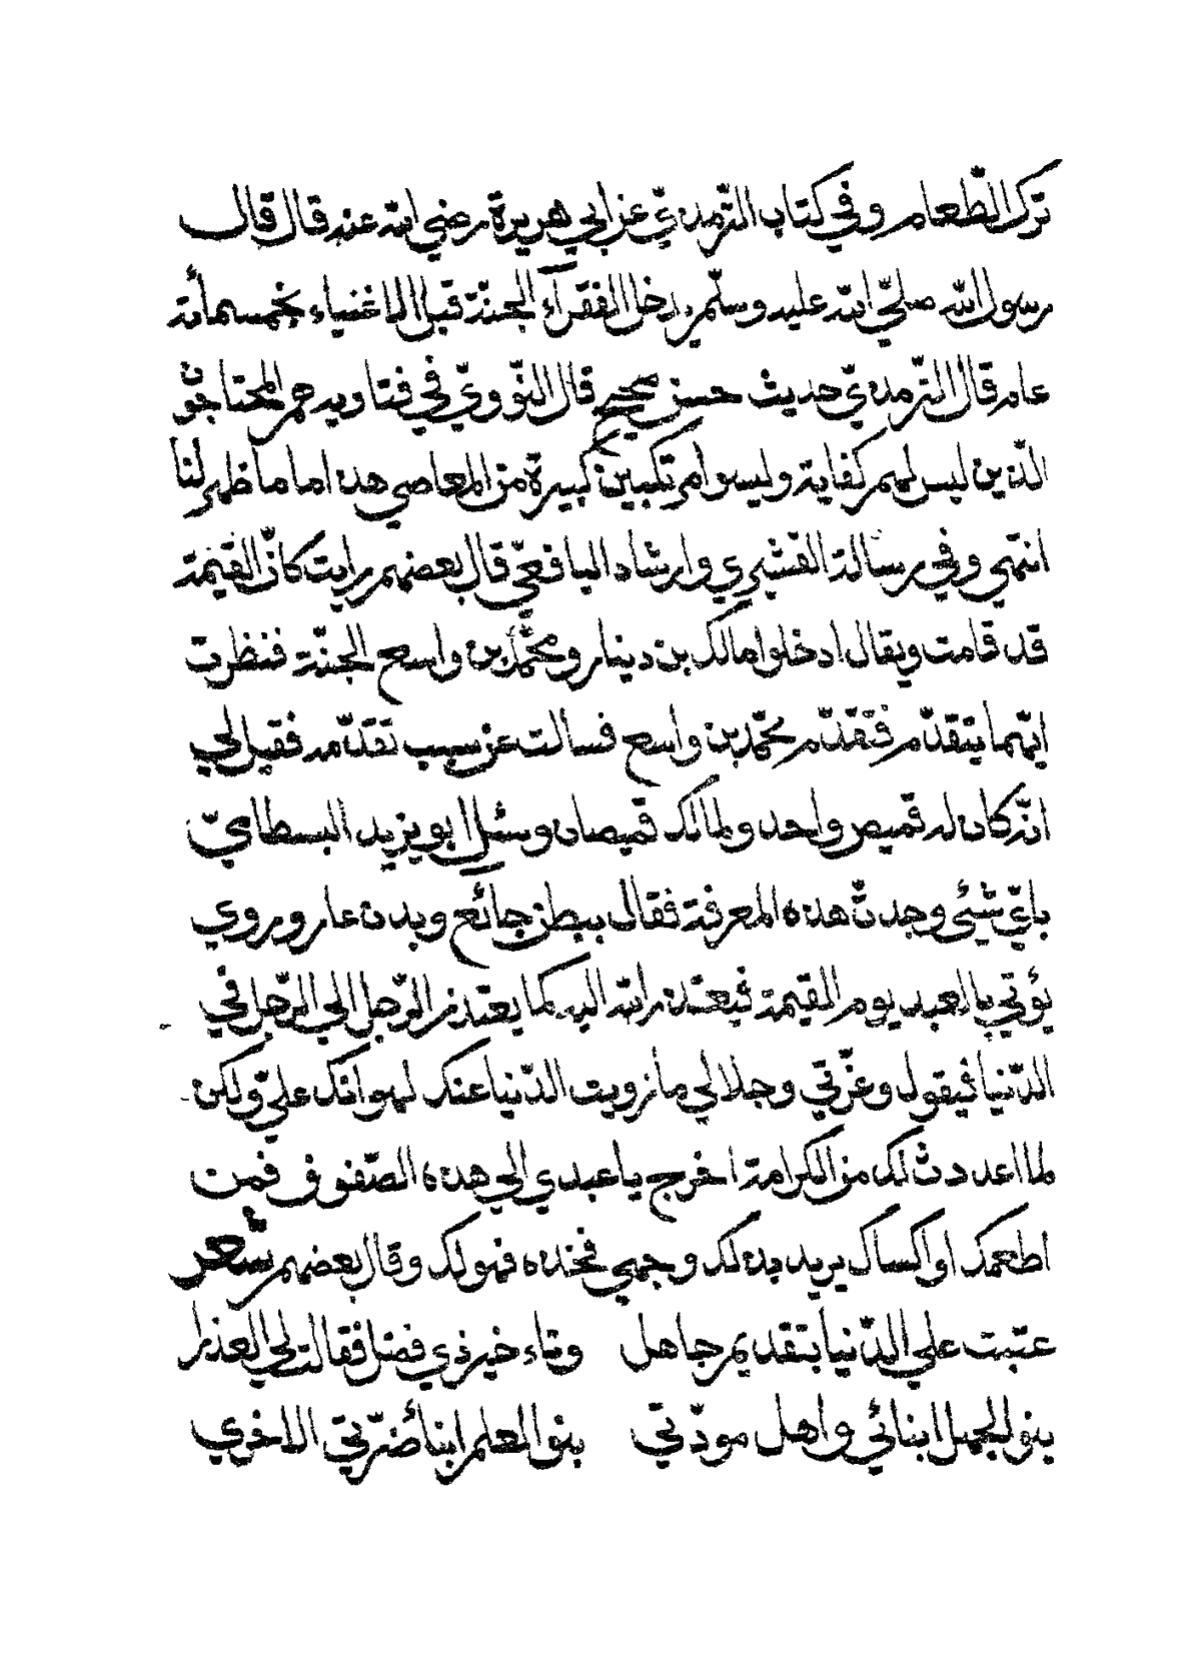 ترك الطّعام وفي كتاب التّرمذيّ عن ابي هريرة رضي الله عنه قال قال
رسول الله صلّي الله عليه وسلّم يدخل الفقرآء الجنّة قبل الاغنياء بخمسمأئة
عام قال التّرمذيّ حديث حسن صحيح قال النّوويّ في فتاويه هم المحتاجون
الّذين ليس لهم كفاية وليسوا مرتكبين كبيرة من المعاصي هذا ما ما ظهر لنا
انتهي وفي رسالة القشيري وارشاد اليافعيّ قال بعضهم رايت كانّ القيمة
قد قامت ويقال ادخلوا مالك بن دينار ومحمّد بن واسع الجنّة فنظرت
ايّهما يتقدّم فتقدّم محمّد بن واسع فسالت عن سبب تقدّمه فقيل لي
انّه كان له قميص واحد ولمالك قميصان وسئل ابو يزيد البسطاميّ
بايّ شيئ وجدتّ هذه المعرفة فقال ببطن جائع وبدن عار وروي
يؤتي بالعبد يوم القيمة فيعتذر الله اليه كما يعتذر الرّجل الي الرّجل في
الدّنيا فيقول وعزّتي وجلالي ما زويت الدّنيا عنك لهوانك عليّ ولكن
لما اعددتّ لك من الكرامة اخرج يا عبدي الي هذه الصّفوف فمن
اطعمك او اكساك يريد بذلك وجهي فخذه فهو لك وقال بعضهم شعر
عتبت علي الدّنيا بتقديم جاهل وتاء خير ذي فضل فقالت لي العذرا
بنو الجهل ابنائي واهل مودّتي بنو العلم ابنأ ضرّتي الاخري